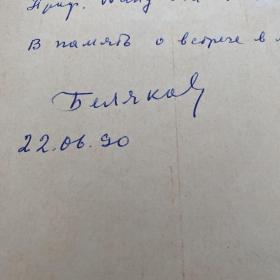 Проф.
В память о встрече в
Беляков
22.06.90